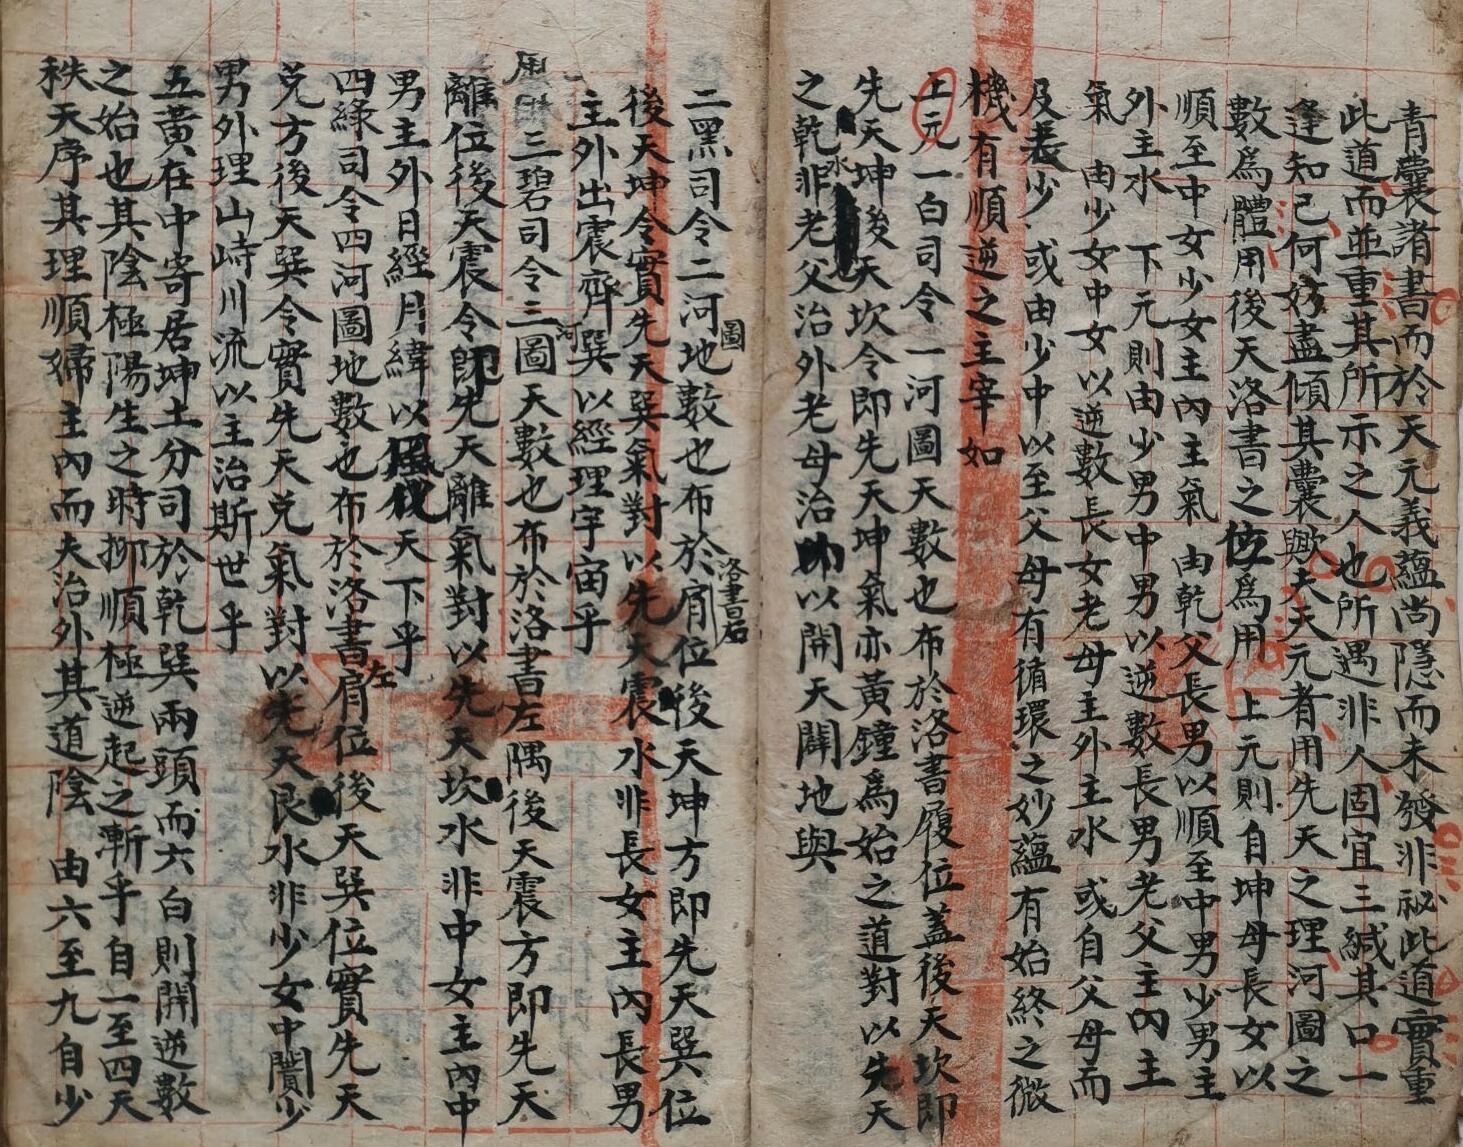 青囊諸書而於天元義蘊尚隱而未發非祕此道實重
此道而並重其所示之人也所遇非人固宜三緘其口一
逢知己何妨盡傾其囊歟夫天元者用先天之理河圖之
數為體用後天洛書之位為用上元則自坤母長女以
順至中女少女主內主氣由乾父長男以順至中男少男主
外主水下元則由少男中男以逆數長男老父主內主
氣由少女中女以逆數長女老母主外主水或自父母而
及長少或由少中以至父母有循環之妙蘊有始終之微
機有順逆之主宰如
上元一白司令一河圖天數也布於洛書履位蓋後天坎即
先天坤後天坎令即先天坤氣亦黃鐘為始之道對以先天
之乾水非老父治外老母治以開天闢地與
二黑司令二河圖地數也布於洛書右肩位後天坤方即先天巽位
後天坤令實先天巽氣對以先天震水非長女主內長男
主外出震齊巽以經理宇宙乎
三碧司令三河圖天數也布於洛書左隅後天震方即先天
離位後天震令即先天離氣對以先天坎水非中女主內中
男主外日經月緯以天下乎
四綠司令四河圖地數也布於洛書左肩位後天巽位實先天
兌方後天巽令實先天兌氣對以先天艮水非少女中閫少
男外理山峙川流以主治斯世乎
五黃在中寄居坤土分司於乾巽兩頭而六白則開逆數
之始也其陰極陽生之時抑順極逆起之漸乎自一至四天
秩天序其理順婦主內而夫治外其道陰由六至九自少